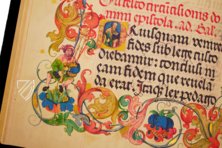 epistola. ad.
quam veniret
fides sub lege custo
diebamur: conclusi in
eam fidem que revela
da erat. Itaque lex pedago